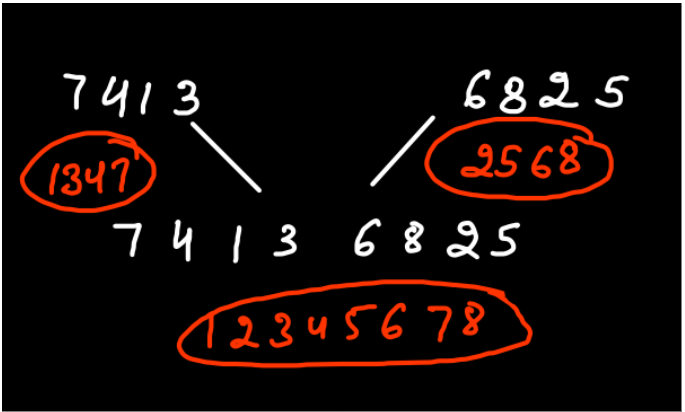 7 4 1 3 6 8 2 5
1 3 4 7 2 5 6 8
7 4 1 3 6 8 2 5
1 2 3 4 5 6 7 8